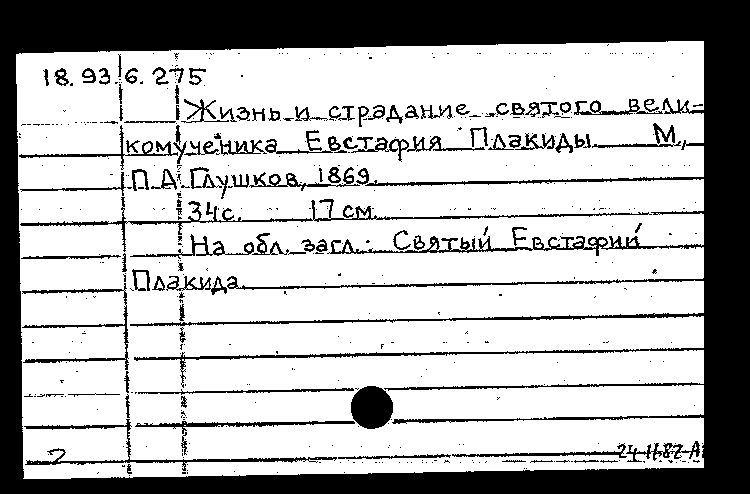 18.93.6.275
Жизнь и страдание святого вели-
комученика Евстафия Плакиды. М.,
П.А. Глушков, 1869.
34с. 17 см.
На обл. загл.: Святый Евстафий
Плакида.
2